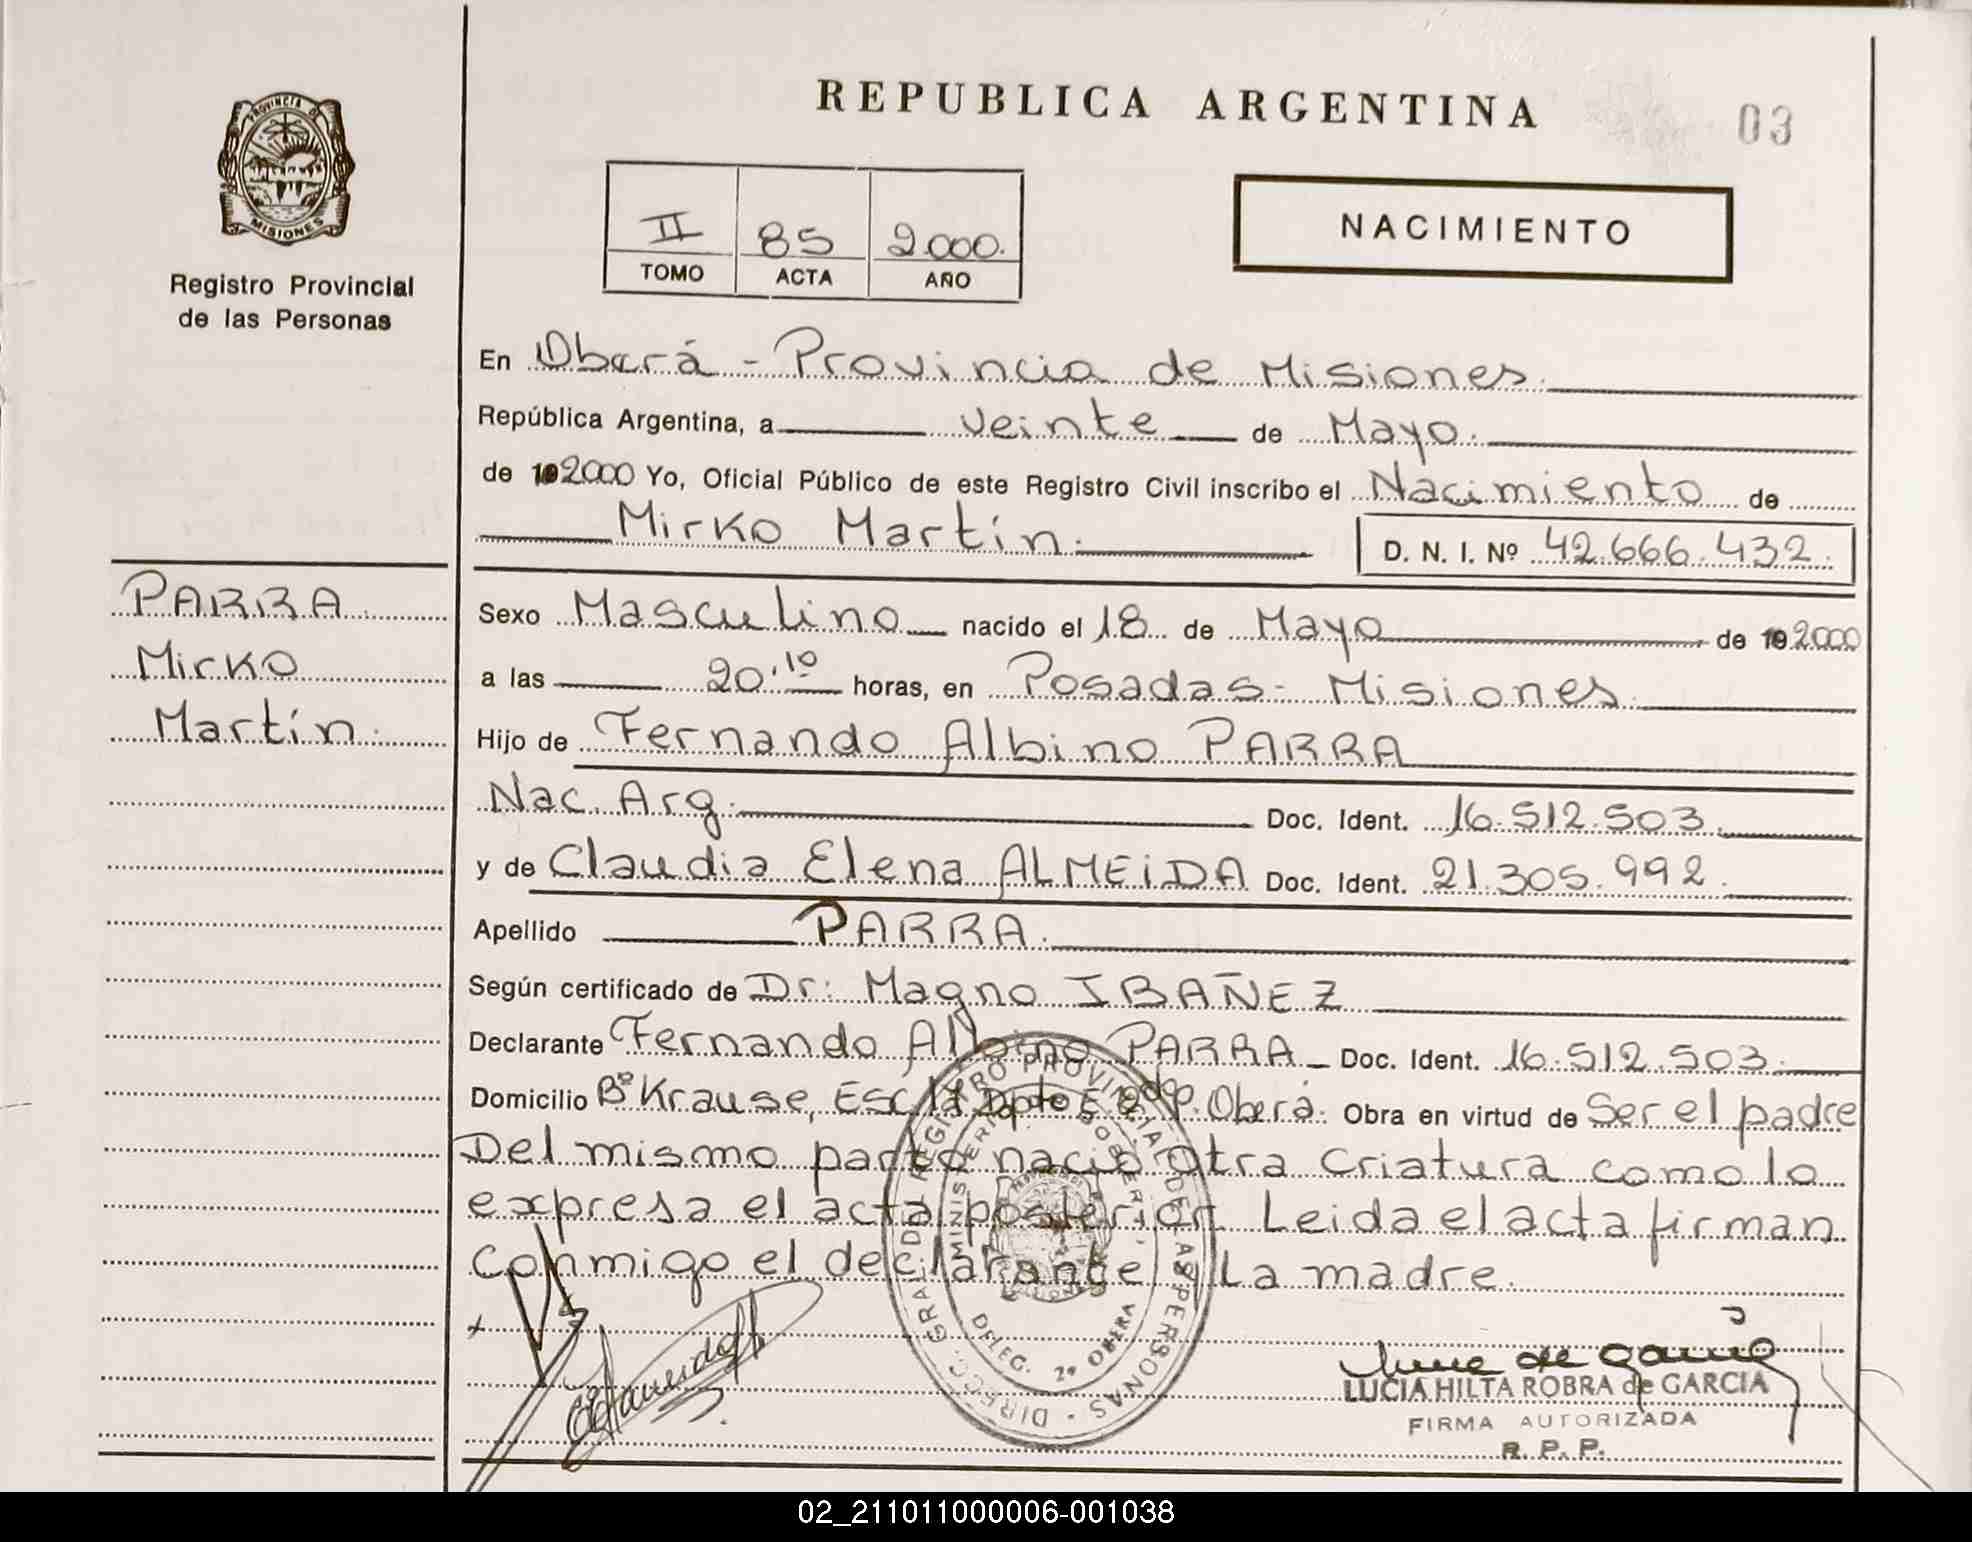 REPUBLICA ARGENTINA
03
PROVINCIA DE
MISIONES
Registro Provincial
de las Personas
II 85 2.000.
TOMO ACTA AÑO
NACIMIENTO
En Oberá - Provincia de Misiones.
República Argentina, a veinte de Mayo.
de 19 2000 Yo, Oficial Público de este Registro Civil inscribo el Nacimiento de
Mirko Martín.
D. N. I. Nº 42.666.432.
PARRA
Mirko
Martín.
Sexo Masculino nacido el 18 de Mayo de 19 2000
a las 20'10 horas, en Posadas - Misiones.
Hijo de Fernando Albino PARRA
Nac. Arg. Doc. Ident. 16.512.503.
y de Claudia Elena ALMEIDA Doc. Ident. 21.305.992.
Apellido PARRA.
Según certificado de Dr: Magno IBAÑEZ
Declarante Fernando Albino PARRA Doc. Ident. 16.512.503.
Domicilio Bº Krause, Esc. Dpto E Oberá. Obra en virtud de Ser el padre
Del mismo parto nació otra criatura como lo
expresa el acta posterior. Leida el acta firman
conmigo el declarante y La madre.
DIRECC. GRAL. DEL REGISTRO PROVINCIAL DE LAS PERSONAS
MINISTERIO GOBIERNO
DELEG. 2º OBERA
LUCIA HILTA ROBRA de GARCIA
FIRMA AUTORIZADA
R. P. P.
02_211011000006-001038